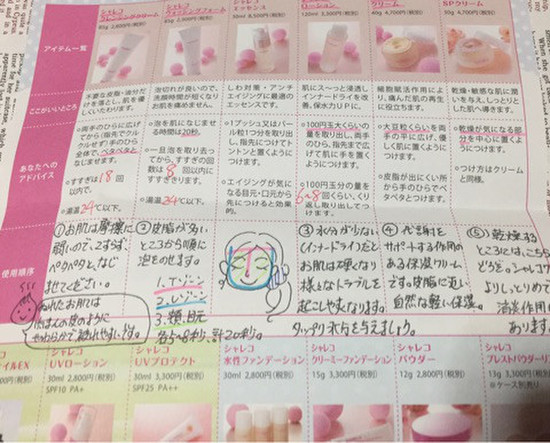 シャレコ
クレンジングクリーム
80g 2,800円(税別)
シャレコ
ウォッシングフォーム
80g 2,500円(税別)
シャレコ
エッセンス
30ml 8,500円(税別)
ローション
120ml 3,300円(税別)
クリーム
40g 4,700円(税別)
SPクリーム
30g 4,700円(税別)
アイテム一覧
ここがいいところ
不要な皮脂・油分だ
けを落とし、肌を優
しくいたわります。
泡切れが良いので、
洗顔時間が短くなり
お肌を痛めません。
しわ対策・アンチ
エイジングに最適の
エッセンスです。
肌にス〜っと浸透し
インナードライを改
善、保水力UPに。
細胞賦活作用によ
り、痛んだ肌の再生
に役立ちます。
乾燥・敏感な肌に潤
いを与え、しっとりと
した肌へ導きます。
あなたへの
アドバイス
○両手のひらに広げて
から(指先でクル
クルせず)手のひら
全体で、ペタペタと
なじませます。
○すすぎは18回
以内で。
○湯温24℃以下。
○泡を肌になじませ
る時間は20秒。
○一旦泡を取り去っ
てから、すすぎの回
数は8回以内に
すすぎきります。
○湯温24℃以下。
○1プッシュ又はパー
ル粒1つ分を取り出
し、指先につけてト
ントンと置くように
つけます。
○エイジングが気に
なる目元・口元から
先につけると効果的。
○100円玉大くらいの
量を取り出し、両手の
ひら、指先まで広げて
肌に手を置くように
つけます。
○100円玉分の量を
6~8回くらい、くり
返し取り出してつけ
ます。
○大豆粒くらいを両手
の平に広げ、優し
く肌に置くように
つけます。
○皮脂が出にくい所
から手のひらでペ
タペタとつけます。
○乾燥が気になる部分
を中心に置くように
つけます。
○つけ方はクリーム
と同様。
使用順序
①お肌は摩擦に
弱いので、こすらず、
ペタペタと、なじ
ませてください。
ぬれたお肌では
やわらかで破れやすいです。
②皮脂が多い
ところから順に
泡をのせます。
1. Tゾーン
2. Uゾーン
3. 頬、目元
各5〜8秒、計20秒。
③水分が少ない
(インナードライ)だと
お肌は硬くなり
様々なトラブルを
起こしやすくなります。
タップリ水分を与えましょう。
④代謝を
サポートする作用の
ある保湿クリーム
です。皮脂に近い
自然な軽い保湿。
⑤乾燥する
ところには、こちら
あります
UVローション
30ml 2,800円(税別)
SPF10 PA+
シャレコ
UVプロテクト
30ml 3,300円(税別)
SPF25 PA++
シャレコ
水性ファンデーション
30ml 2,800円(税別)
シャレコ
クリーミーファンデーション
15g 3,300円(税別)
シャレコ
パウダー
12g 2,800円(税別)
シャレコ
プレストパウダー
13g 3,300円(税別)
※ケース別売り